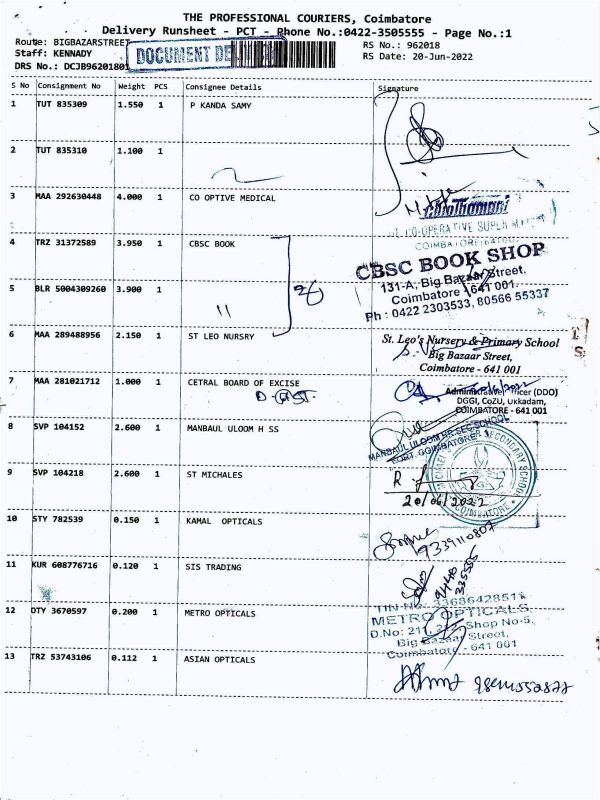 THE PROFESSIONAL COURIERS, Coimbatore
Delivery Runsheet - PCT - Phone No.:0422-3505555 - Page No.:1
Route: BIGBAZARSTREET
RS No.: 962018
Staff: KENNADY
DOCUMENT DE
RS Date: 20-Jun-2022
DRS No.: DCJB96201801
S No Consignment No Weight PCS Consignee Details Signature
1 TUT 835309 1.550 1 P KANDA SAMY
2 TUT 835310 1.100 1
3 MAA 292630448 4.000 1 CO OPTIVE MEDICAL
CO-OPERATIVE SUPER
COIMBATORE
4 TRZ 31372589 3.950 1 CBSC BOOK
CBSC BOOK SHOP
131-A, Big Bazaar Street,
Coimbatore 641 001.
Ph : 0422 2303533, 80566 55337
5 BLR 5004309260 3.900 1 "
6 MAA 289488956 2.150 1 ST LEO NURSRY
St. Leo's Nursery & Primary School
Big Bazaar Street,
Coimbatore - 641 001
7 MAA 281021712 1.000 1 CETRAL BOARD OF EXCISE
Administrative Officer (DDO)
DGGI, CoZU, Ukkadam,
COIMBATORE - 641 001
8 SVP 104152 2.600 1 MANBAUL ULOOM H SS
MANBAUL ULOOM HR SEC SCHOOL
FORT, COIMBATORE 1
9 SVP 104218 2.600 1 ST MICHALES
SECONDARY SCHOOL
COIMBATORE
20/06/2022
10 STY 782539 0.150 1 KAMAL OPTICALS
9339110807
11 KUR 608776716 0.120 1 SIS TRADING
12 OTY 3670597 0.200 1 METRO OPTICALS
METRO OPTICALS
Shop No-5,
Big Bazaar Street,
Coimbatore - 641 001
13 TRZ 53743106 0.112 1 ASIAN OPTICALS